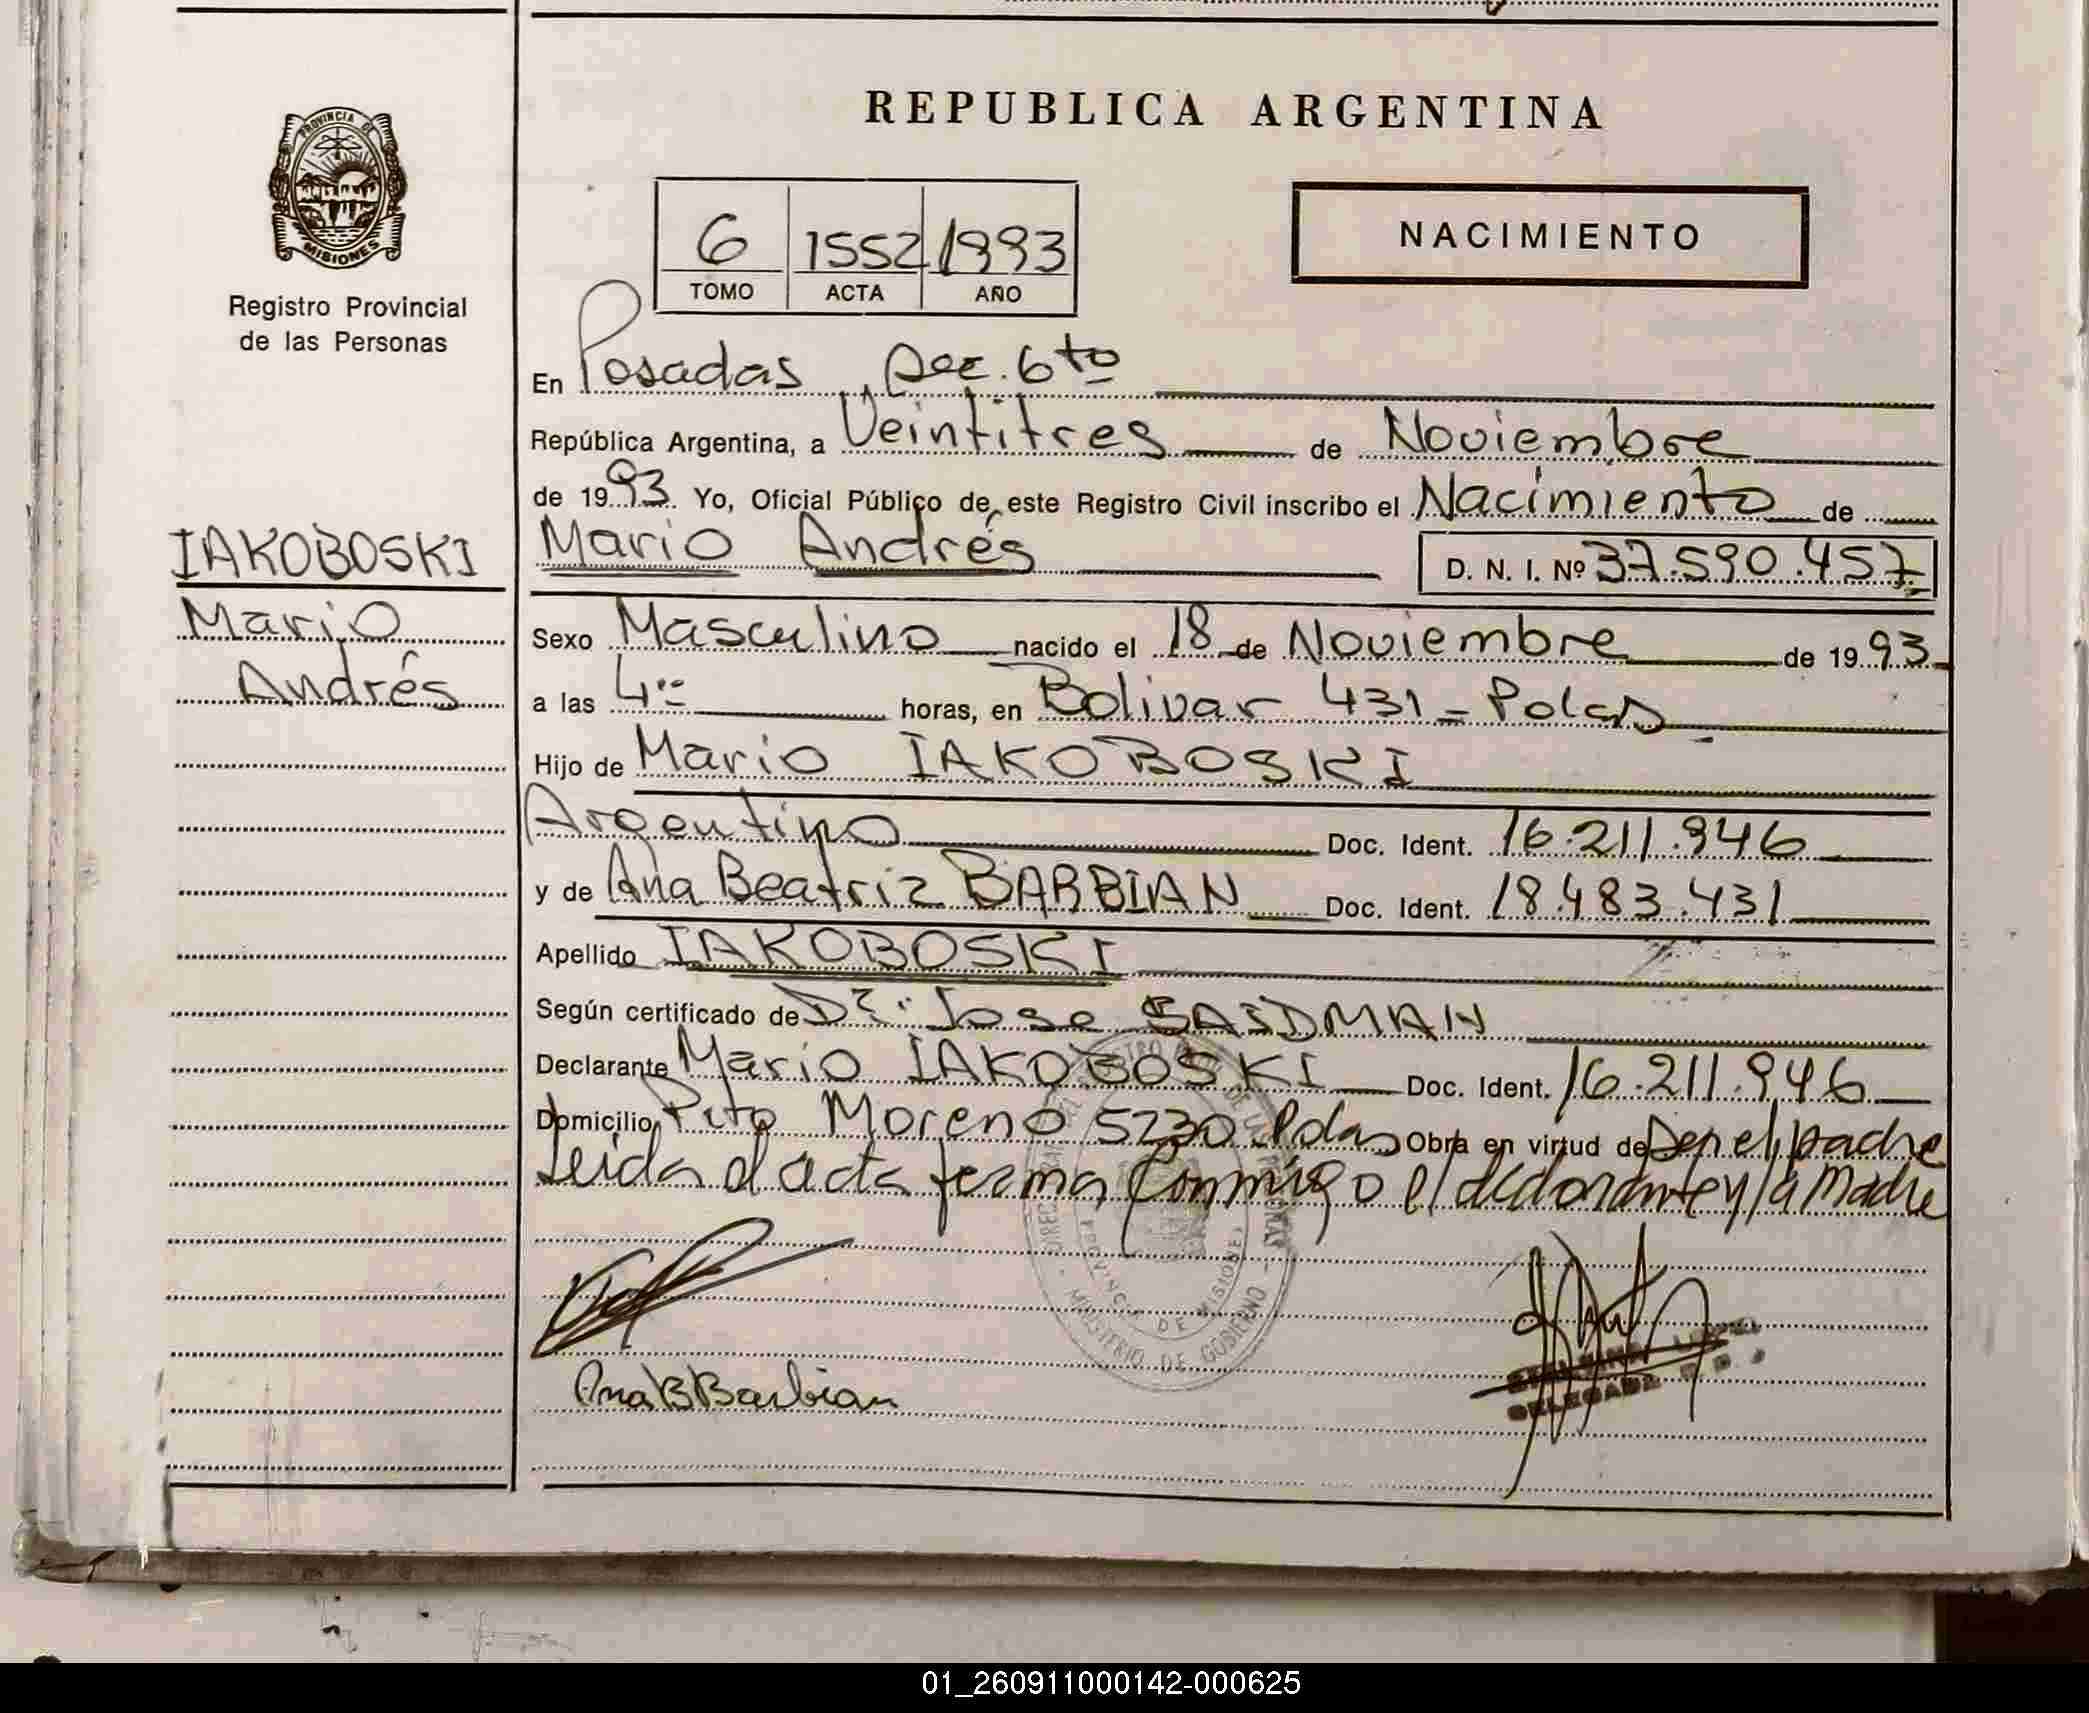 REPUBLICA ARGENTINA
PROVINCIA DE
MISIONES
Registro Provincial
de las Personas
6 1552 1993
TOMO ACTA AÑO
NACIMIENTO
En Posadas Sec. 6to
República Argentina, a Veintitres de Noviembre
de 1993. Yo, Oficial Público de este Registro Civil inscribo el Nacimiento de
IAKOBOSKI
Mario
Andrés
Mario Andrés D. N. I. Nº 37.590.457
Sexo Masculino nacido el 18 de Noviembre de 1993
a las 4 horas, en Bolivar 431 - Pdas
Hijo de Mario IAKOBOSKI
Argentino Doc. Ident. 16.211.946
y de Ana Beatriz BARBIAN Doc. Ident. 18.483.431
Apellido IAKOBOSKI
Según certificado de Dr. Jose SAIDMAN
Declarante Mario IAKOBOSKI Doc. Ident. 16.211.946
Domicilio Pito Moreno 5730 Pdas Obra en virtud de Ser el padre
Leida el acta firma Conmigo el declarante y la Madre
PROVINCIA DE MISIONES
MINISTERIO DE GOBIERNO
Ana B Barbian
DELEGADA R. P.
01_260911000142-000625